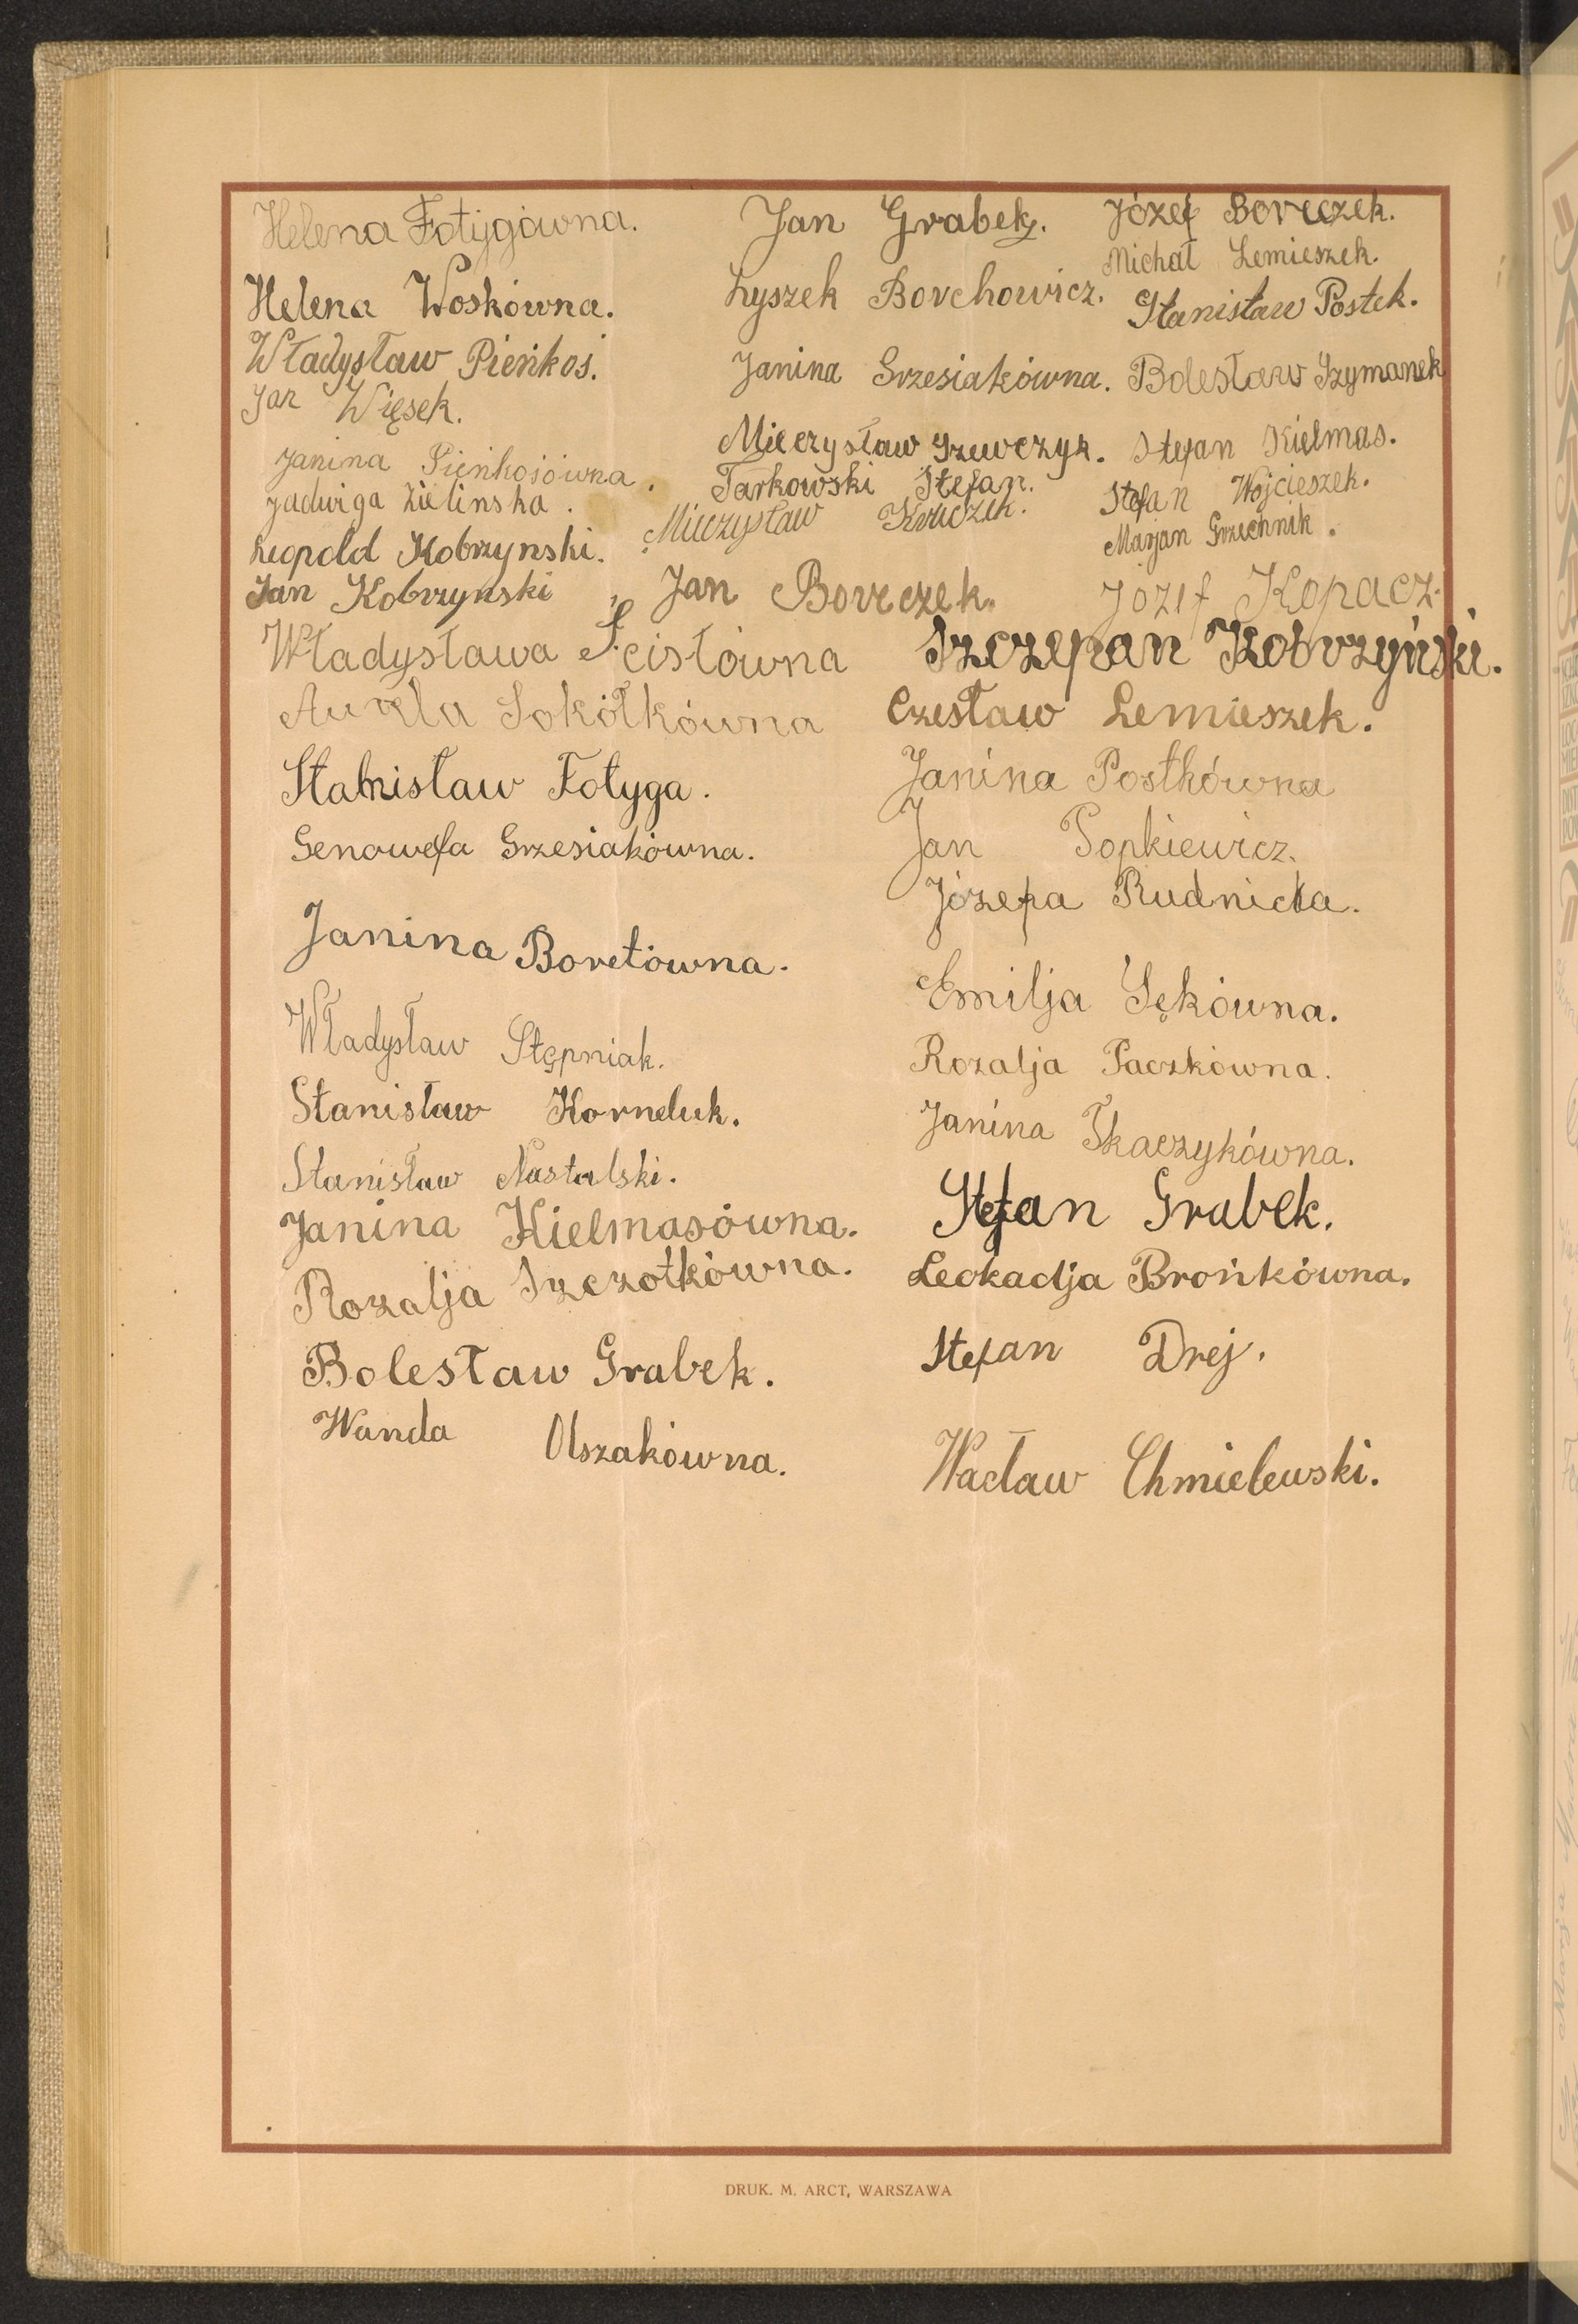 Helena Fotygówna.
Jan Grabek.
Józef Borczek.
Michał Lemieszek.
Helena Woskówna.
Łyszek Borchowicz.
Stanisław Postek.
Władysław Pieńkoś.
Janina Grzesiakówna.
Bolesław Szymanek
Jan Więsek.
Mieczysław Szewczyk.
Stefan Kielmas.
Janina Pieńkosówna.
Tarkowski Stefan.
Stefan Wojcieszek.
Jadwiga Zielinska.
Mieczysław
Marjan Grzechnik.
Leopold Kobrzynski.
Jan Kobrzynski
Jan Borczek.
Józef Kopacz.
Władysława Ścisłówna
Szczepan Kobrzyński.
Aurela Sokółkówna
Czesław Lemieszek.
Stanisław Fotyga.
Janina Postkówna
Genowefa Grzesiakówna.
Jan Popkiewicz.
Józefa Rudnicka.
Janina Boretówna.
Emilja Sękówna.
Władysław Stępniak.
Rozalja Paczkówna.
Stanisław Korneluk.
Janina Tkaczykówna.
Stanisław Nastalski.
Stefan Grabek.
Janina Kielmasówna.
Rozalja Szczotkówna.
Leokadja Brońkówna.
Bolesław Grabek.
Stefan Drej.
Wanda Olszakówna.
Wacław Chmielewski.
DRUK. M. ARCT, WARSZAWA